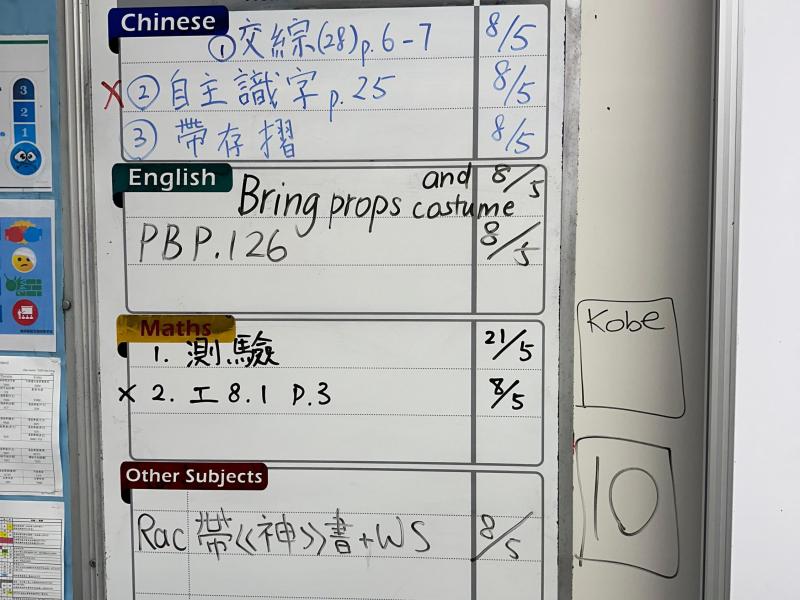 Chinese
① 交綜(28)p.6-7 8/5
X ② 自主識字 p.25 8/5
③ 帶存摺 8/5
English
Bring props and costume 8/5
PB P.126 8/5
Maths
1. 測驗 21/5
X 2. 工 8.1 P.3 8/5
Other Subjects
Rac 帶《神》書+WS 8/5
Kobe
10
3
2
1